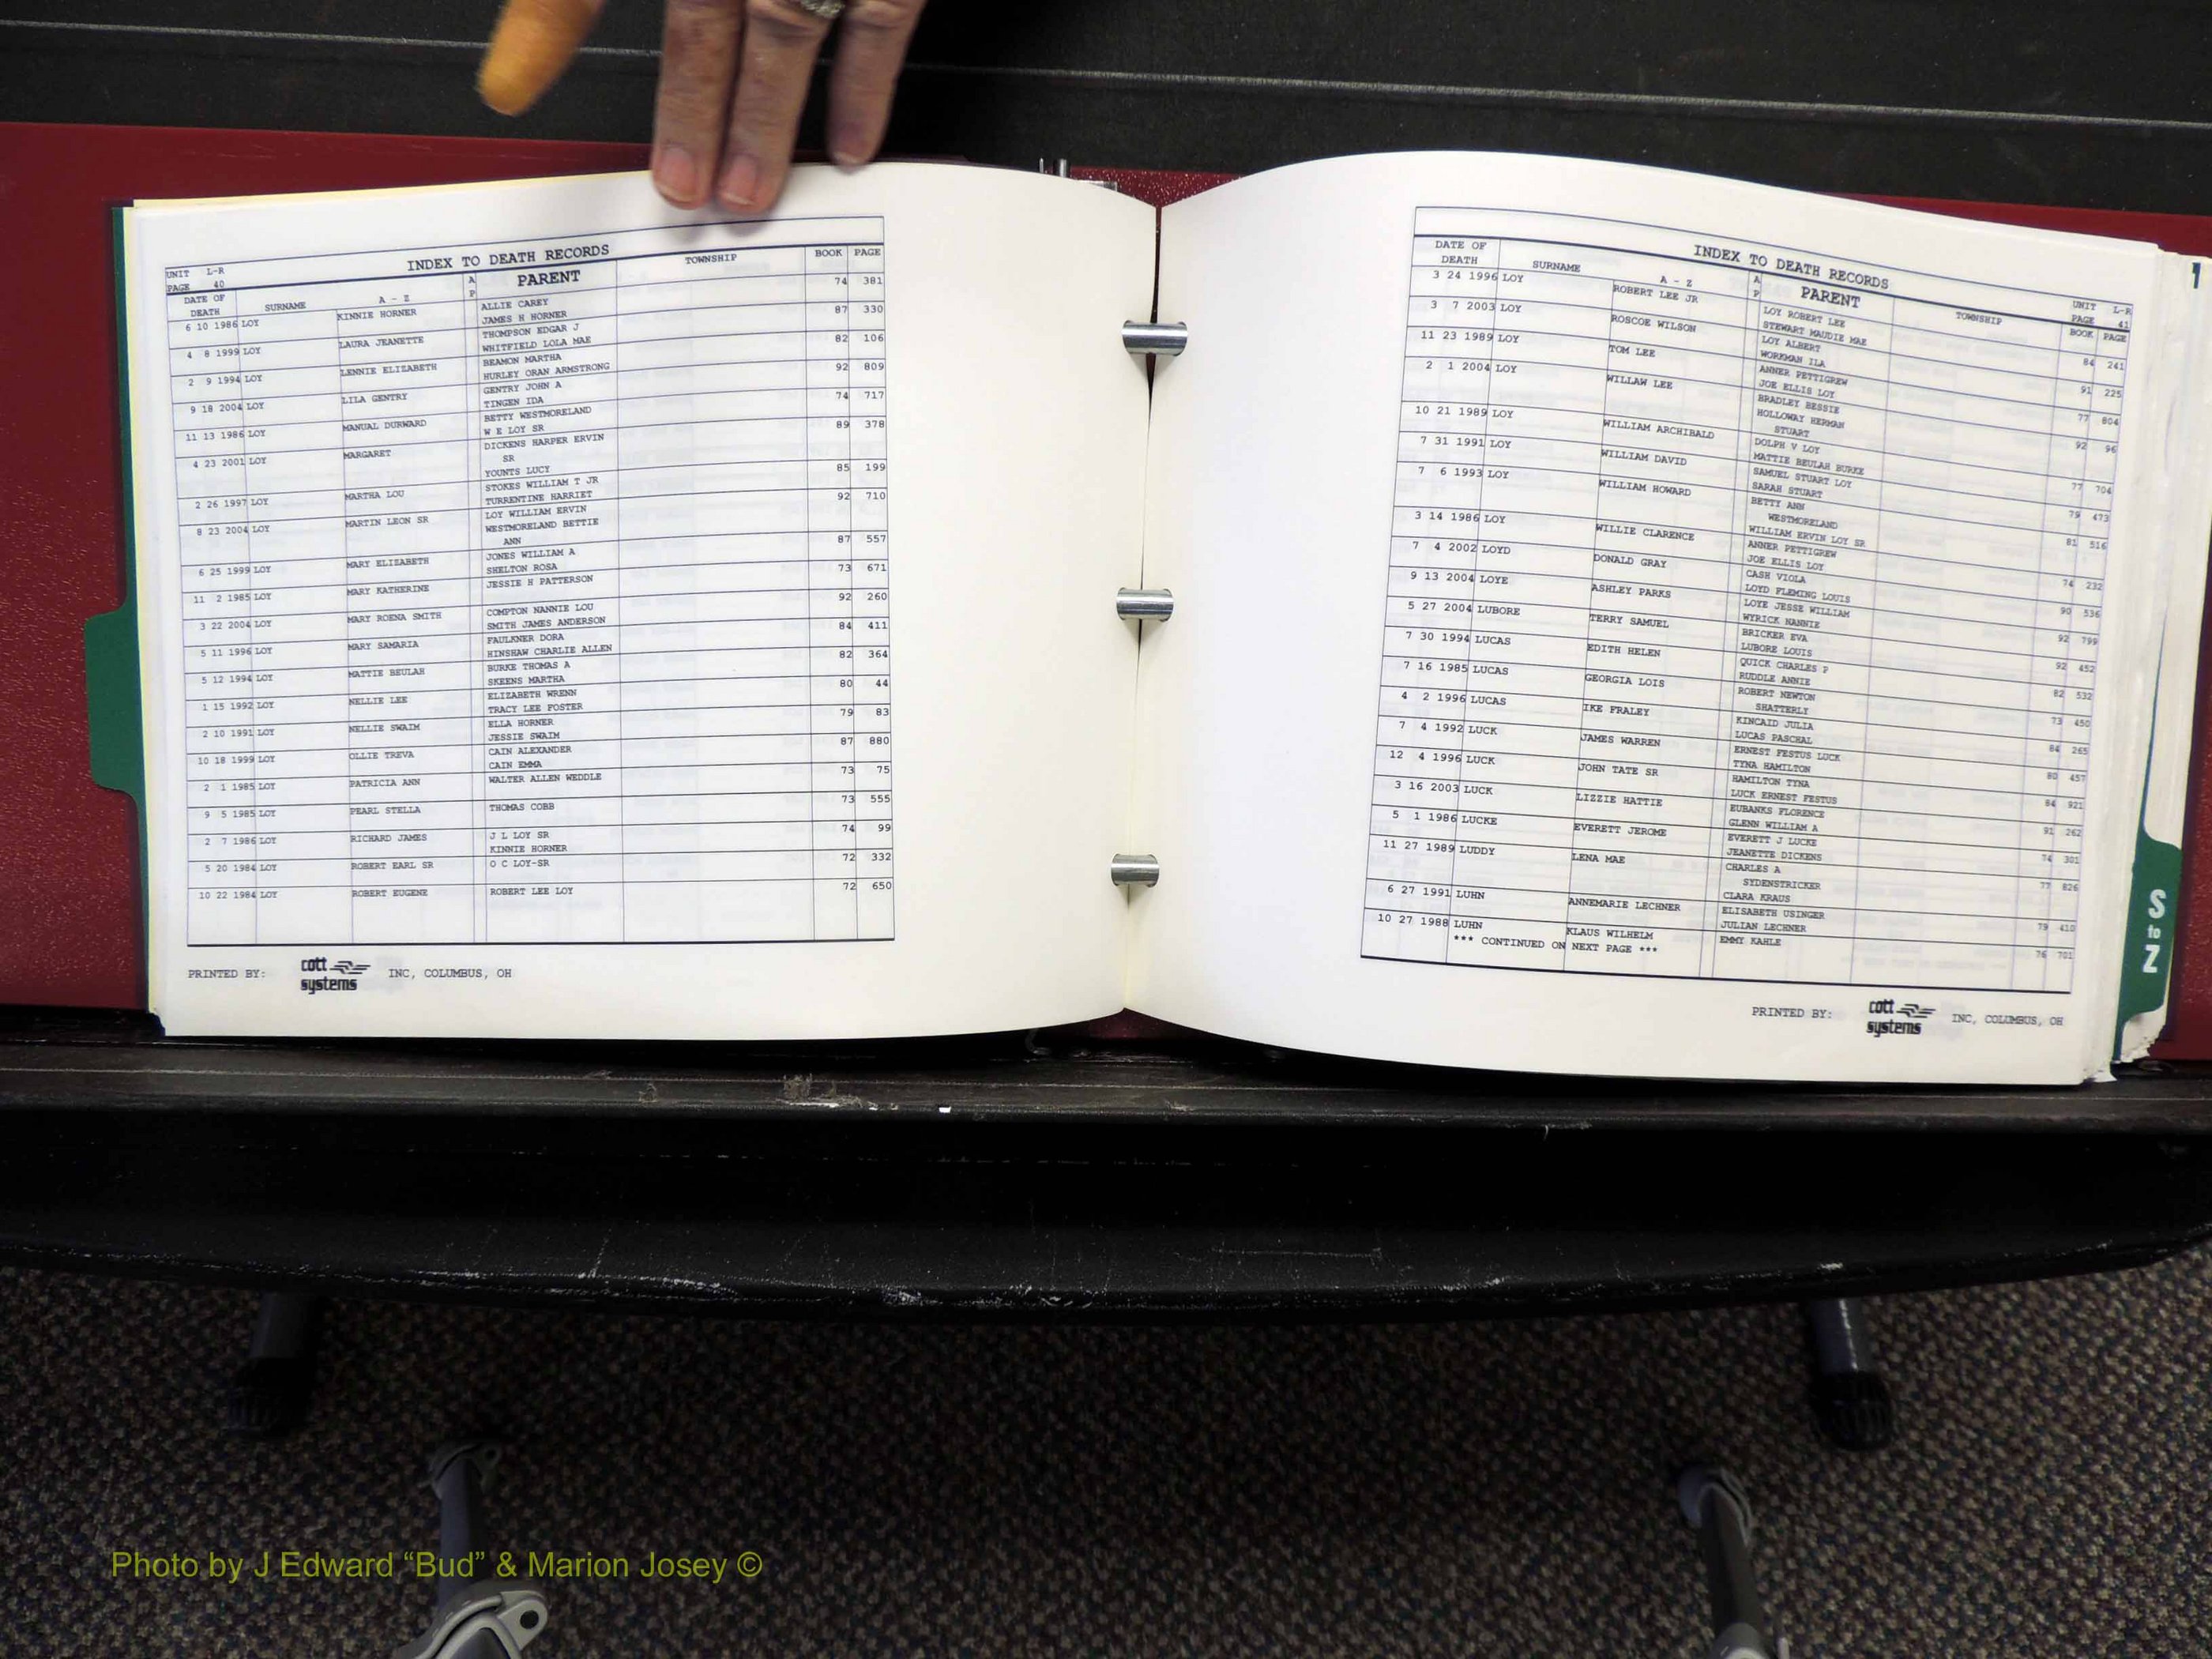 UNIT L-R
PAGE 40
INDEX TO DEATH RECORDS
DATE OF DEATH SURNAME A - Z A P PARENT TOWNSHIP BOOK PAGE
6 10 1986 LOY KINNIE HORNER ALLIE CAREY 74 381
JAMES H HORNER
4 8 1999 LOY LAURA JEANETTE THOMPSON EDGAR J 87 330
WHITFIELD LOLA MAE
2 9 1994 LOY LENNIE ELIZABETH BEAMON MARTHA 82 106
HURLEY ORAN ARMSTRONG
9 18 2004 LOY LILA GENTRY GENTRY JOHN A 92 809
TINGEN IDA
11 13 1986 LOY MANUAL DURWARD BETTY WESTMORELAND 74 717
W E LOY SR
4 23 2001 LOY MARGARET DICKENS HARPER ERVIN 89 378
SR
YOUNTS LUCY
2 26 1997 LOY MARTHA LOU STOKES WILLIAM T JR 85 199
TURRENTINE HARRIET
8 23 2004 LOY MARTIN LEON SR LOY WILLIAM ERVIN 92 710
WESTMORELAND BETTIE
ANN
6 25 1999 LOY MARY ELIZABETH JONES WILLIAM A 87 557
SHELTON ROSA
11 2 1985 LOY MARY KATHERINE JESSIE H PATTERSON 73 671
3 22 2004 LOY MARY ROENA SMITH COMPTON NANNIE LOU 92 260
SMITH JAMES ANDERSON
5 11 1996 LOY MARY SAMARIA FAULKNER DORA 84 411
HINSHAW CHARLIE ALLEN
5 12 1994 LOY MATTIE BEULAH BURKE THOMAS A 82 364
SKEENS MARTHA
1 15 1992 LOY NELLIE LEE ELIZABETH WRENN 80 44
TRACY LEE FOSTER
2 10 1991 LOY NELLIE SWAIM ELLA HORNER 79 83
JESSIE SWAIM
10 18 1999 LOY OLLIE TREVA CAIN ALEXANDER 87 880
CAIN EMMA
2 1 1985 LOY PATRICIA ANN WALTER ALLEN WEDDLE 73 75
9 5 1985 LOY PEARL STELLA THOMAS COBB 73 555
2 7 1986 LOY RICHARD JAMES J L LOY SR 74 99
KINNIE HORNER
5 20 1984 LOY ROBERT EARL SR O C LOY-SR 72 332
10 22 1984 LOY ROBERT EUGENE ROBERT LEE LOY 72 650
PRINTED BY: cott systems INC, COLUMBUS, OH
INDEX TO DEATH RECORDS
UNIT L-R
PAGE 41
DATE OF DEATH SURNAME A - Z A P PARENT TOWNSHIP BOOK PAGE
3 24 1996 LOY ROBERT LEE JR LOY ROBERT LEE 84 241
STEWART MAUDIE MAE
3 7 2003 LOY ROSCOE WILSON LOY ALBERT 91 225
WORKMAN ILA
11 23 1989 LOY TOM LEE ANNER PETTIGREW 77 804
JOE ELLIS LOY
2 1 2004 LOY WILLAW LEE BRADLEY BESSIE 92 96
HOLLOWAY HERMAN
STUART
10 21 1989 LOY WILLIAM ARCHIBALD DOLPH V LOY 77 704
MATTIE BEULAH BURKE
7 31 1991 LOY WILLIAM DAVID SAMUEL STUART LOY 79 473
SARAH STUART
7 6 1993 LOY WILLIAM HOWARD BETTY ANN 81 516
WESTMORELAND
WILLIAM ERVIN LOY SR
3 14 1986 LOY WILLIE CLARENCE ANNER PETTIGREW 74 232
JOE ELLIS LOY
7 4 2002 LOYD DONALD GRAY CASH VIOLA 90 536
LOYD FLEMING LOUIS
9 13 2004 LOYE ASHLEY PARKS LOYE JESSE WILLIAM 92 799
WYRICK NANNIE
5 27 2004 LUBORE TERRY SAMUEL BRICKER EVA 92 452
LUBORE LOUIS
7 30 1994 LUCAS EDITH HELEN QUICK CHARLES P 82 532
RUDDLE ANNIE
7 16 1985 LUCAS GEORGIA LOIS ROBERT NEWTON 73 450
SHATTERLY
4 2 1996 LUCAS IKE FRALEY KINCAID JULIA 84 265
LUCAS PASCHAL
7 4 1992 LUCK JAMES WARREN ERNEST FESTUS LUCK 80 457
TYNA HAMILTON
12 4 1996 LUCK JOHN TATE SR HAMILTON TYNA 84 921
LUCK ERNEST FESTUS
3 16 2003 LUCK LIZZIE HATTIE EUBANKS FLORENCE 91 262
GLENN WILLIAM A
5 1 1986 LUCKE EVERETT JEROME EVERETT J LUCKE 74 301
JEANETTE DICKENS
11 27 1989 LUDDY LENA MAE CHARLES A 77 826
SYDENSTRICKER
CLARA KRAUS
6 27 1991 LUHN ANNEMARIE LECHNER ELISABETH USINGER 79 410
JULIAN LECHNER
10 27 1988 LUHN KLAUS WILHELM EMMY KAHLE 76 701
*** CONTINUED ON NEXT PAGE ***
PRINTED BY: cott systems INC, COLUMBUS, OH
1
S to Z
Photo by J Edward “Bud” & Marion Josey ©